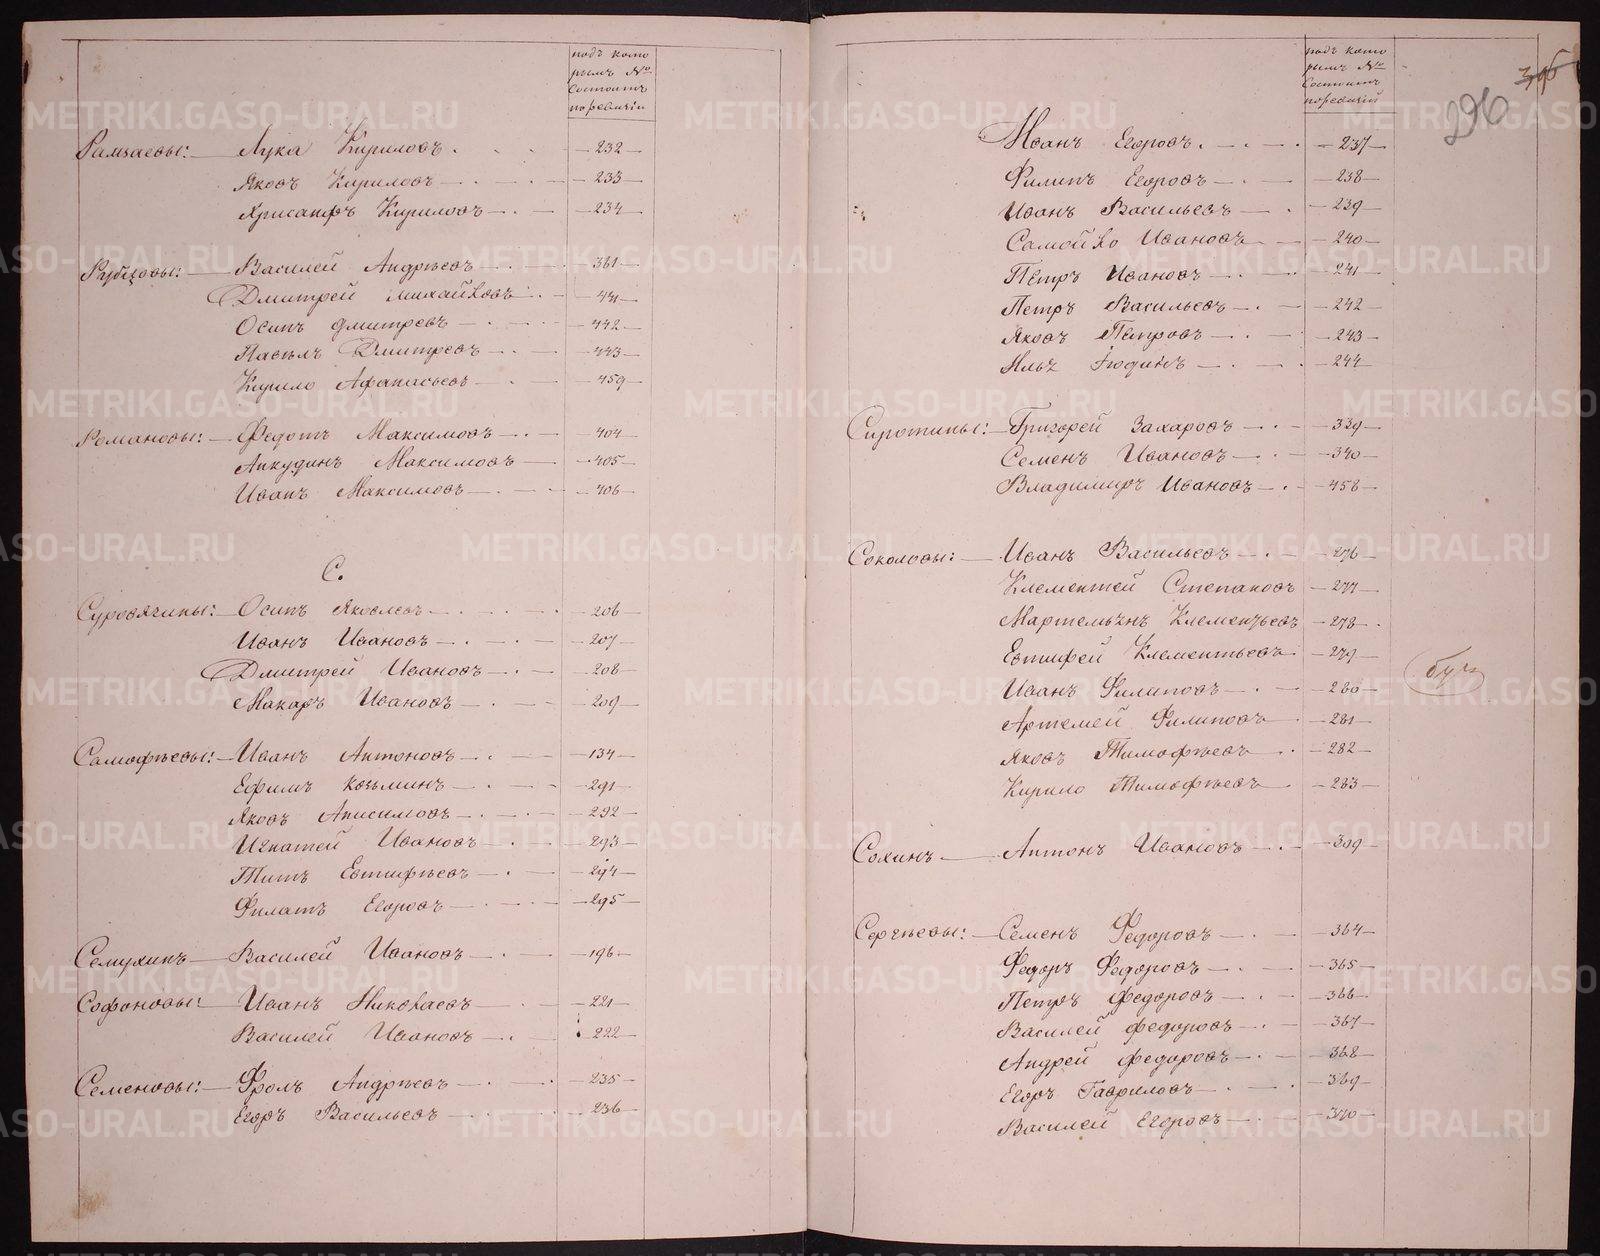 подъ кото
рымъ №
Состоитъ
по ревизiи
Рамзаевы: Лука Кириловъ 232
Яковъ Кириловъ 233
Хрисанфъ Кириловъ 234
Рубцовы: Василей Андрѣевъ 361
Дмитрей Михайловъ 441
Осипъ Дмитревъ 442
Павелъ Дмитревъ 443
Кирило Афанасьевъ 459
Романовы: Федотъ Максимовъ 404
Анкудинъ Максимовъ 405
Иванъ Максимовъ 406
С.
Суровягины: Осипъ Яковлевъ 206
Иванъ Ивановъ 207
Дмитрей Ивановъ 208
Макаръ Ивановъ 209
Самофѣевы: Иванъ Антоновъ 134
Ефимъ Козьминъ 291
Яковъ Анисимовъ 292
Игнатей Ивановъ 293
Титъ Евтифѣевъ 294
Филатъ Егоровъ 295
Семухинъ Василей Ивановъ 196
Софоновы: Иванъ Николаевъ 221
Василей Ивановъ 222
Семеновы: Фролъ Андрѣевъ 235
Егоръ Васильевъ 236
подъ кото
рымъ №
Состоитъ
по ревизiй
296
Иванъ Егоровъ 237
Филипъ Егоровъ 238
Иванъ Васильевъ 239
Самойло Ивановъ 240
Петръ Ивановъ 241
Петръ Васильевъ 242
Яковъ Петровъ 243
Илья Iюдинъ 244
Сиротины: Григорей Захаровъ 339
Семенъ Ивановъ 340
Владимиръ Ивановъ 458
Соколовы: Иванъ Васильевъ 276
Клементей Степановъ 277
Мартемьянъ Клементьевъ 278
Евтифей Клементьевъ 279
Иванъ Филиповъ 280
Артемей Филиповъ 281
Яковъ Тимофѣевъ 282
Кирило Тимофѣевъ 283
Сохинъ Антонъ Ивановъ 309
Сергѣевы: Семенъ Федоровъ 364
Федоръ Федоровъ 365
Петръ Федоровъ 366
Василей Федоровъ 367
Андрей Федоровъ 368
Егоръ Гавриловъ 369
Василей Егоровъ 370
METRIKI.GASO-URAL.RU